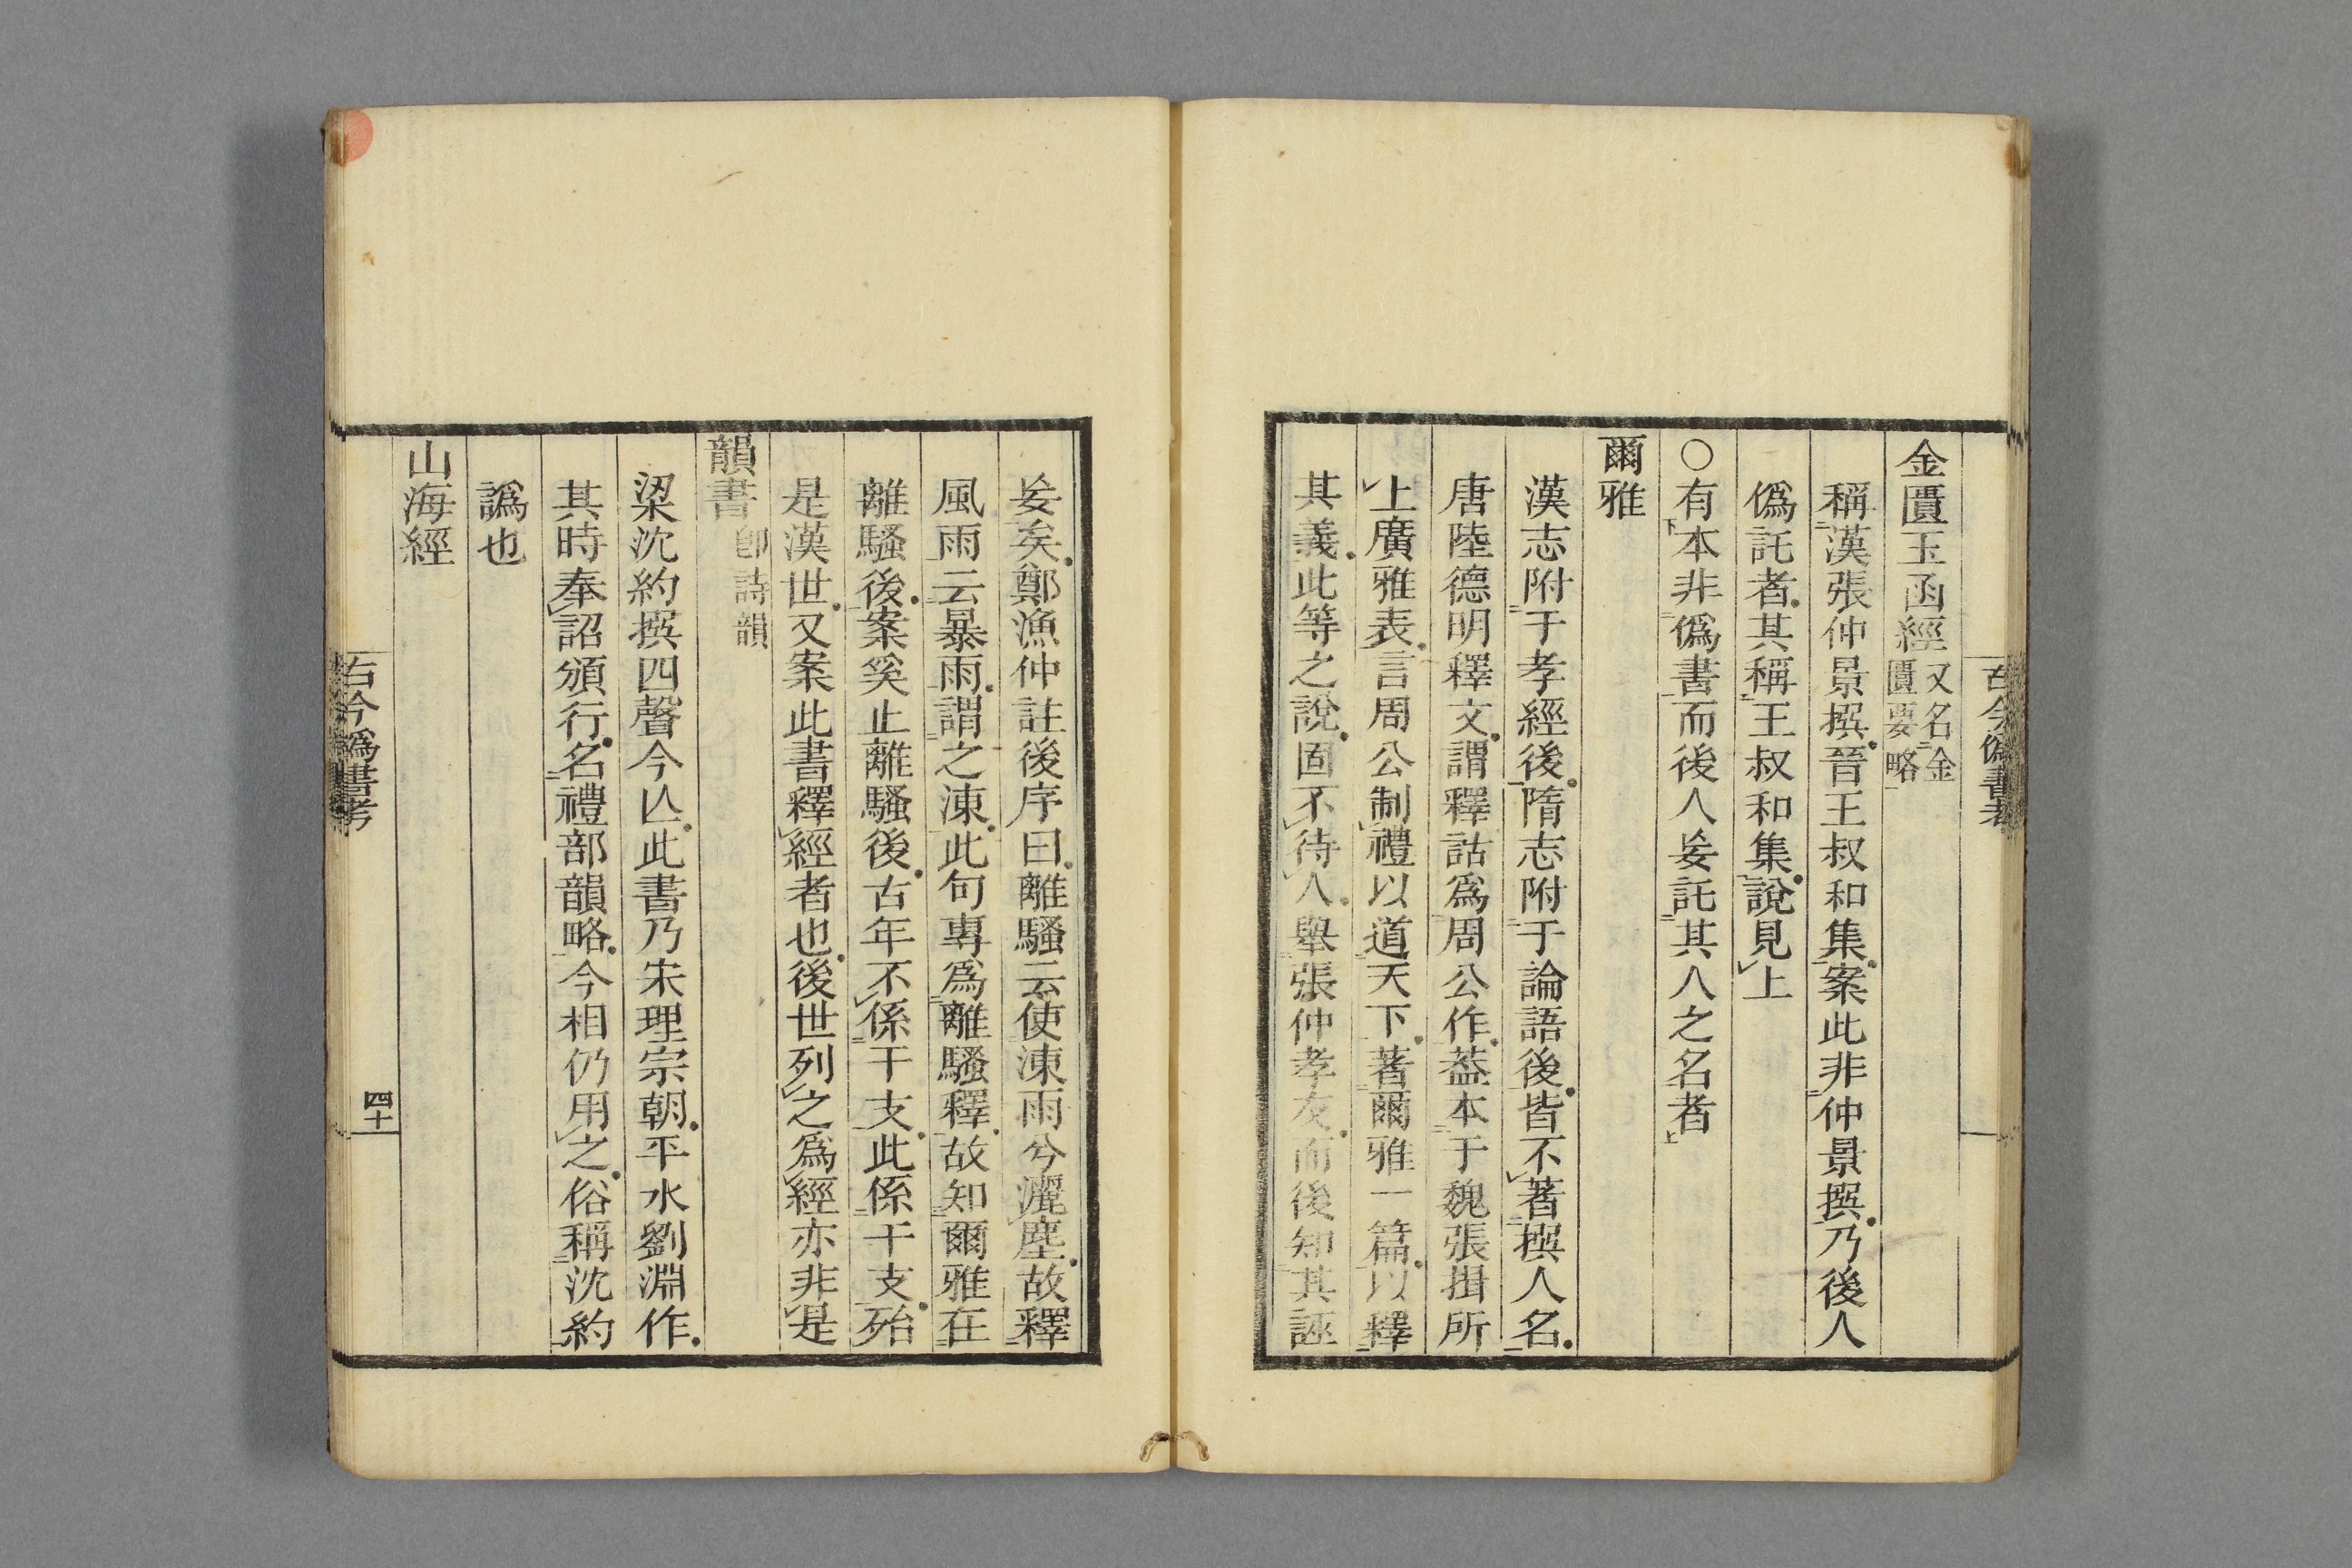 古今僞書考
金匱玉函經又名金匱要略
稱漢張仲景撰晉王叔和集案此非仲景撰乃後人
僞託者其稱王叔和集說見上
○有本非僞書而後人妄託其人之名者
爾雅
漢志附于孝經後隋志附于論語後皆不著撰人名
唐陸德明釋文謂釋詁爲周公作蓋本于魏張揖所
上廣雅表言周公制禮以道天下著爾雅一篇以釋
其義此等之說固不待人舉張仲孝友而後知其誣
妄矣鄭漁仲註後序曰離騷云使涷雨兮灑塵故釋
風雨云暴雨謂之涷此句專爲離騷釋故知爾雅在
離騷後案奚止離騷後古年不係干支此係干支殆
是漢世又案此書釋經者也後世列之爲經亦非是
韻書卽詩韻
梁沈約撰四聲今亾此書乃宋理宗朝平水劉淵作
其時奉詔頒行名禮部韻略今相仍用之俗稱沈約
譌也
山海經
古今僞書考
四十